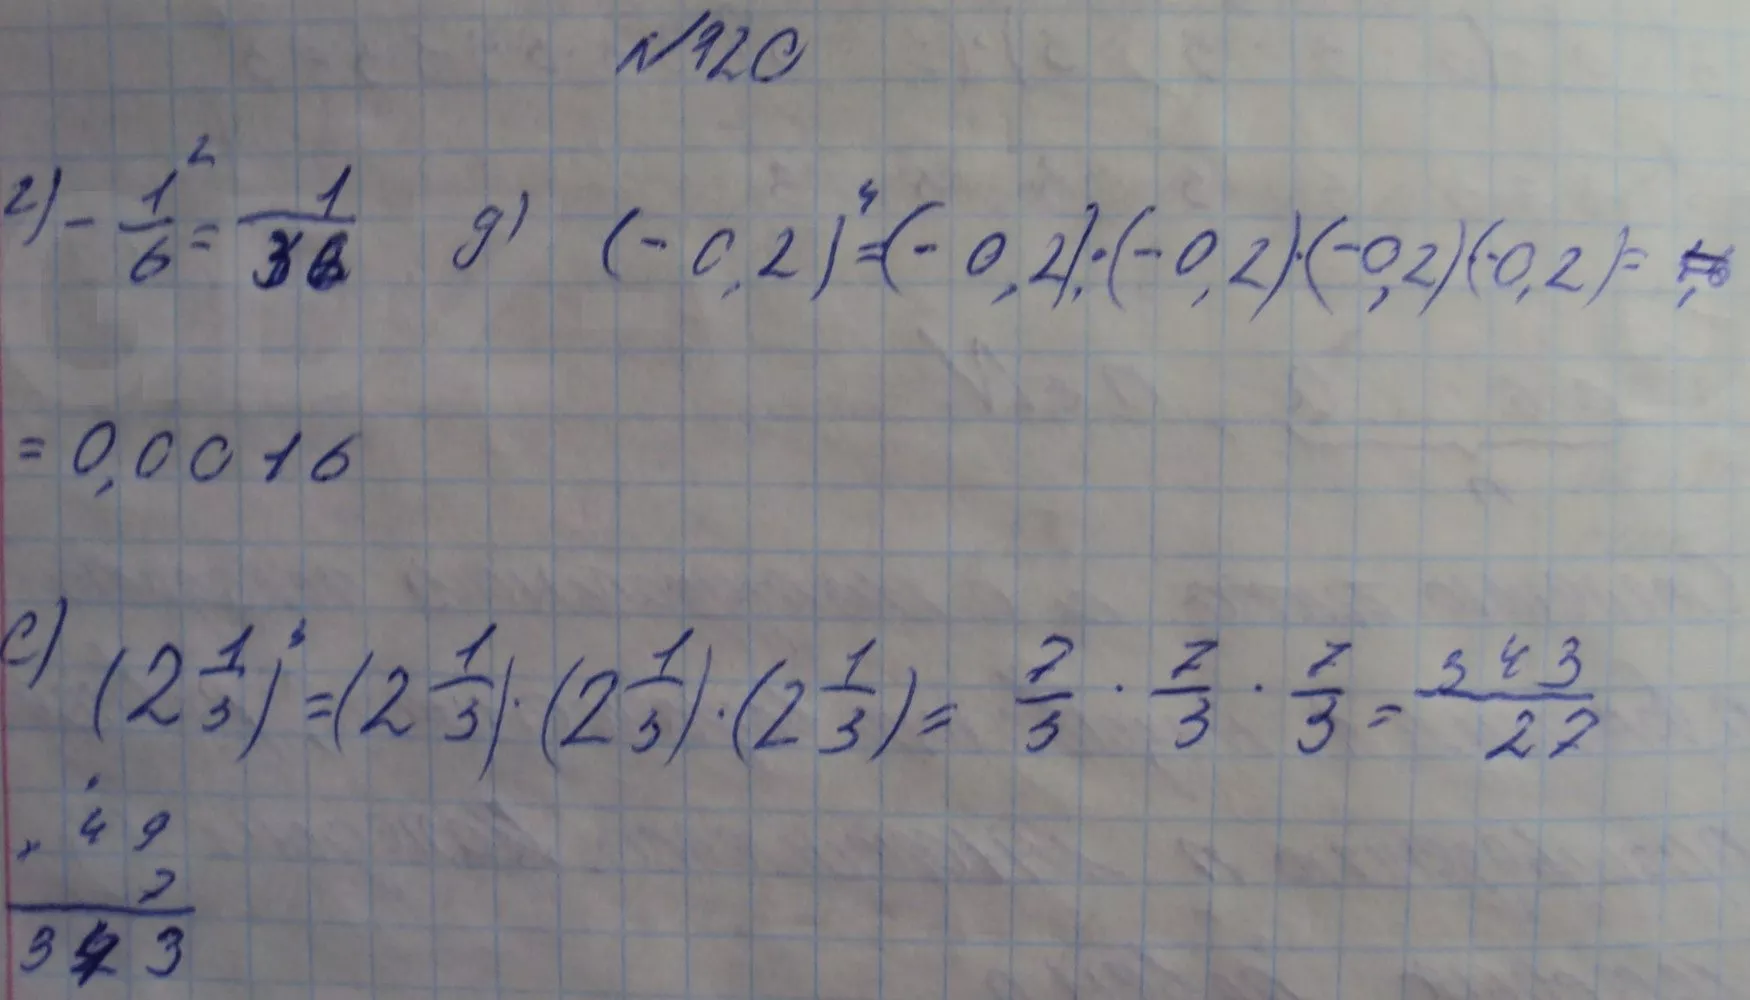 №920
г) - 1/6² = 1/36 д) (-0,2)⁴=(-0,2)·(-0,2)·(-0,2)(-0,2)=
= 0,0016
е) (2 1/3)³=(2 1/3)·(2 1/3)·(2 1/3)= 7/3 · 7/3 · 7/3 = 343/27
× 49
7
343